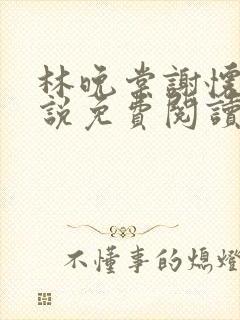 林晚棠謝懷
說免費閱讀
不懂事的熄燈